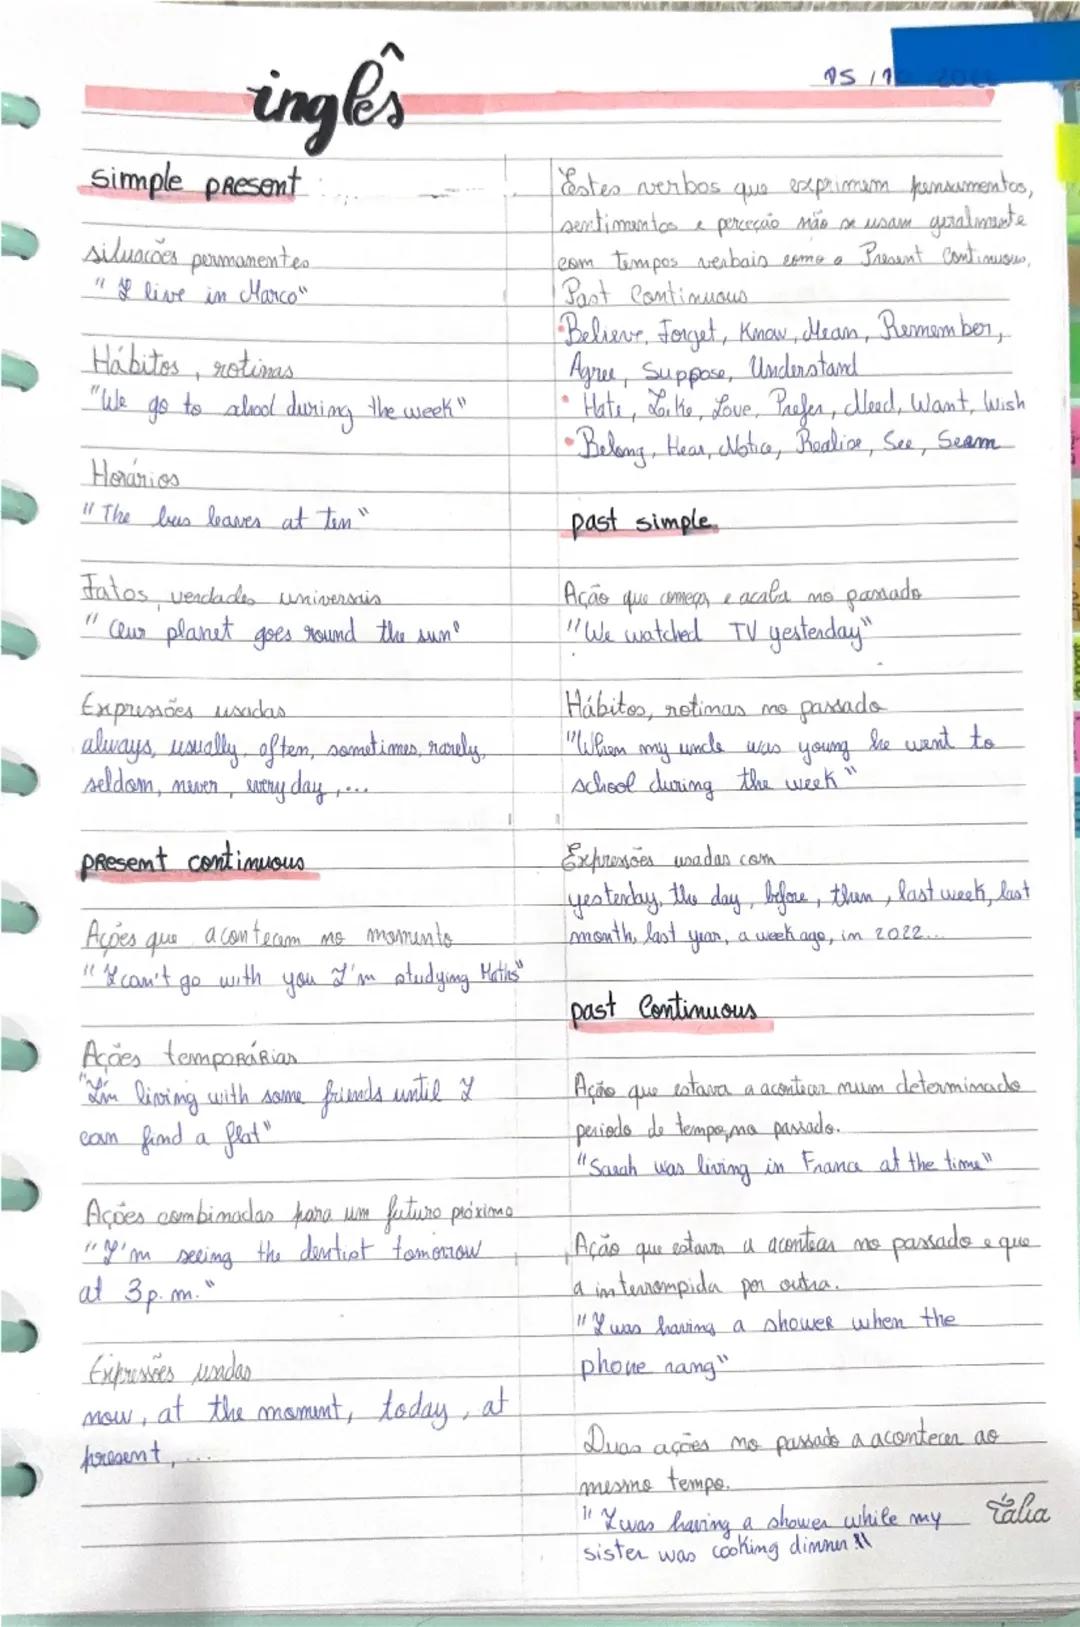 inglês
simple present
situações permanentes
"I live in Marco"
Hábitos, rotinas
"We go to school during the week"
Horários
"The bus leaves at ten"
Fatos, verdades universais
"Our planet goes round the sun"
Expressões usadas
always, usually, often, sometimes, rarely,
seldom, never, every day,...
present continuous
Ações que acontecem no momento
"I can't go with you I'm studying Maths"
Ações temporárias
"I'm living with some friends until I
can find a flat"
Ações combinadas para um futuro próximo
"I'm seeing the dentist tomorrow
at 3p.m."
Expressões usadas
now, at the moment, today, at
present,...
Estes verbos que exprimem pensamentos,
sentimentos e perceção não se usam geralmente
com tempos verbais como o Present Continuous,
Past Continuous
• Believe, Forget, Know, Mean, Remember,
Agree, Suppose, Understand
• Hate, Like, Love, Prefer, Need, Want, Wish
• Belong, Hear, Notice, Realise, See, Seem
past simple
Ação que começa e acaba no passado
"We watched TV yesterday"
Hábitos, rotinas no passado
"When my uncle was young he went to
school during the week"
Expressões usadas com
yesterday, the day, before, then, last week, last
month, last year, a week ago, in 2022...
past Continuous
Ação que estava a acontecer num determinado
periodo de tempo, no passado.
"Sarah was living in France at the time"
Ação que estava a acontecer no passado e que
a interrompida por outra.
"I was having a shower when the
phone rang"
Duas ações no passado a acontecer ao
mesmo tempo.
"I was having a shower while my
sister was cooking dinner"
Tália